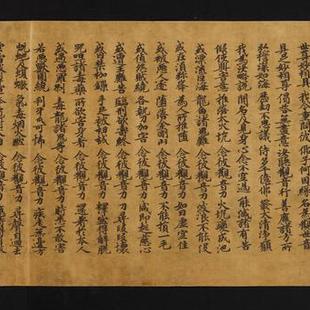 世尊妙相具 我今重問彼 佛子何因緣 名為觀世音
具足妙相尊 偈答無盡意 汝聽觀音行 善應諸方所
弘誓深如海 歷劫不思議 侍多千億佛 發大清淨願
我為汝略說 聞名及見身 心念不空過 能滅諸有苦
假使興害意 推落大火坑 念彼觀音力 火坑變成池
或漂流巨海 龍魚諸鬼難 念彼觀音力 波浪不能沒
或在須弥峯 為人所推墮 念彼觀音力 如日虛空住
或被惡人逐 墮落金剛山 念彼觀音力 不能損一毛
或值怨賊繞 各執刀加害 念彼觀音力 咸即起慈心
或遭王難苦 臨刑欲壽終 念彼觀音力 刀尋段段壞
或囚禁枷鎖 手足被杻械 念彼觀音力 釋然得解脫
呪詛諸毒藥 所欲害身者 念彼觀音力 還著於本人
或遇惡羅剎 毒龍諸鬼等 念彼觀音力 時悉不敢害
若惡獸圍遶 利牙爪可怖 念彼觀音力 疾走無邊方
蚖蛇及蝮蠍 氣毒煙火燃 念彼觀音力 尋聲自迴去